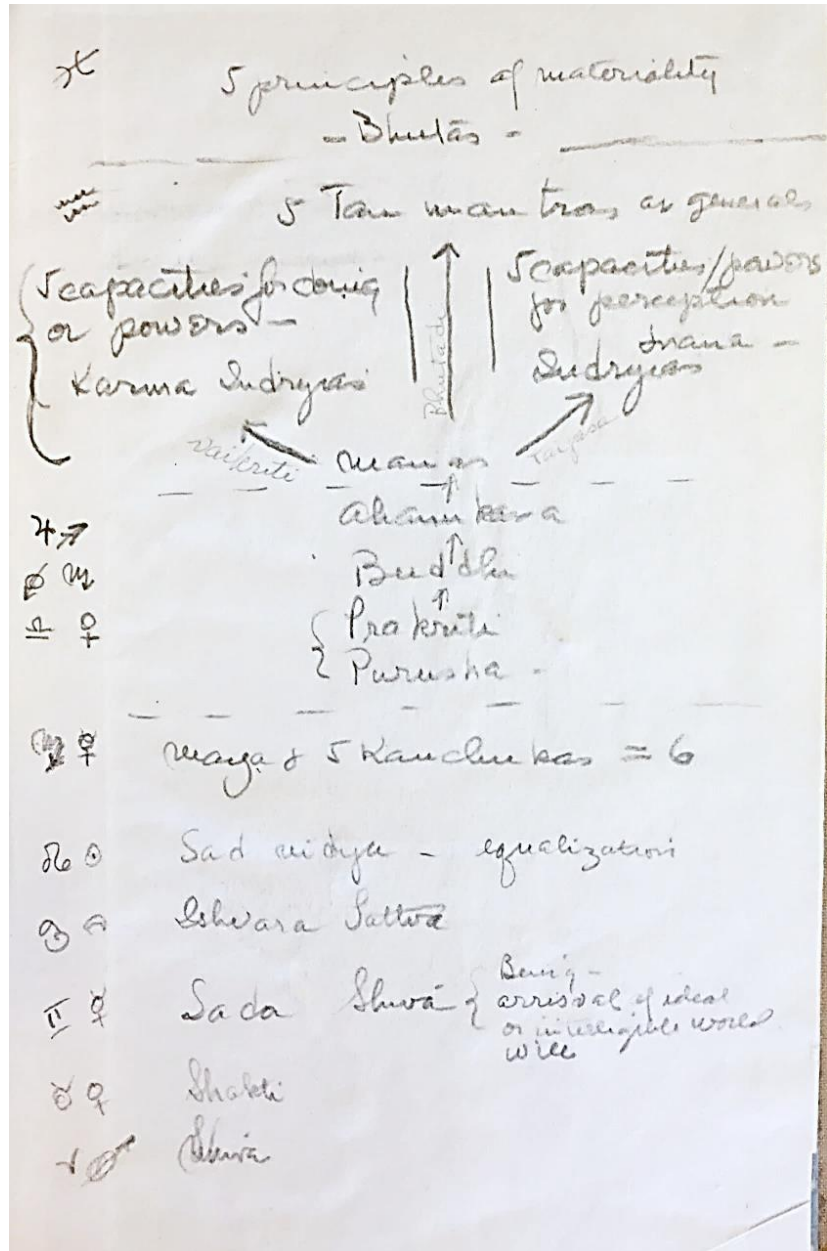 ♓ 5 principles of materiality
- Bhutās -
♒ 5 Tan man tras as generals
5 capacities for doing
or powers -
Karma Indryas
Bhutadi
5 capacities/powers
for perception
Jnana -
Indryas
Vaikriti
Taijasa
manas
♃ ♐ Ahamkara
♂ ♏ Buddhi
♎ ♀ Prakriti
Purusha -
♍ ☿ maya & 5 Kanchukas = 6
♌ ☉ Sad vidya - equalization
♋ Ishvara Sattva
♊ ☿ Sada Shivá
Being -
arrisval of ideal
or intelligible world
will
♉ ♀ Shakti
♈ ♂ Shiva